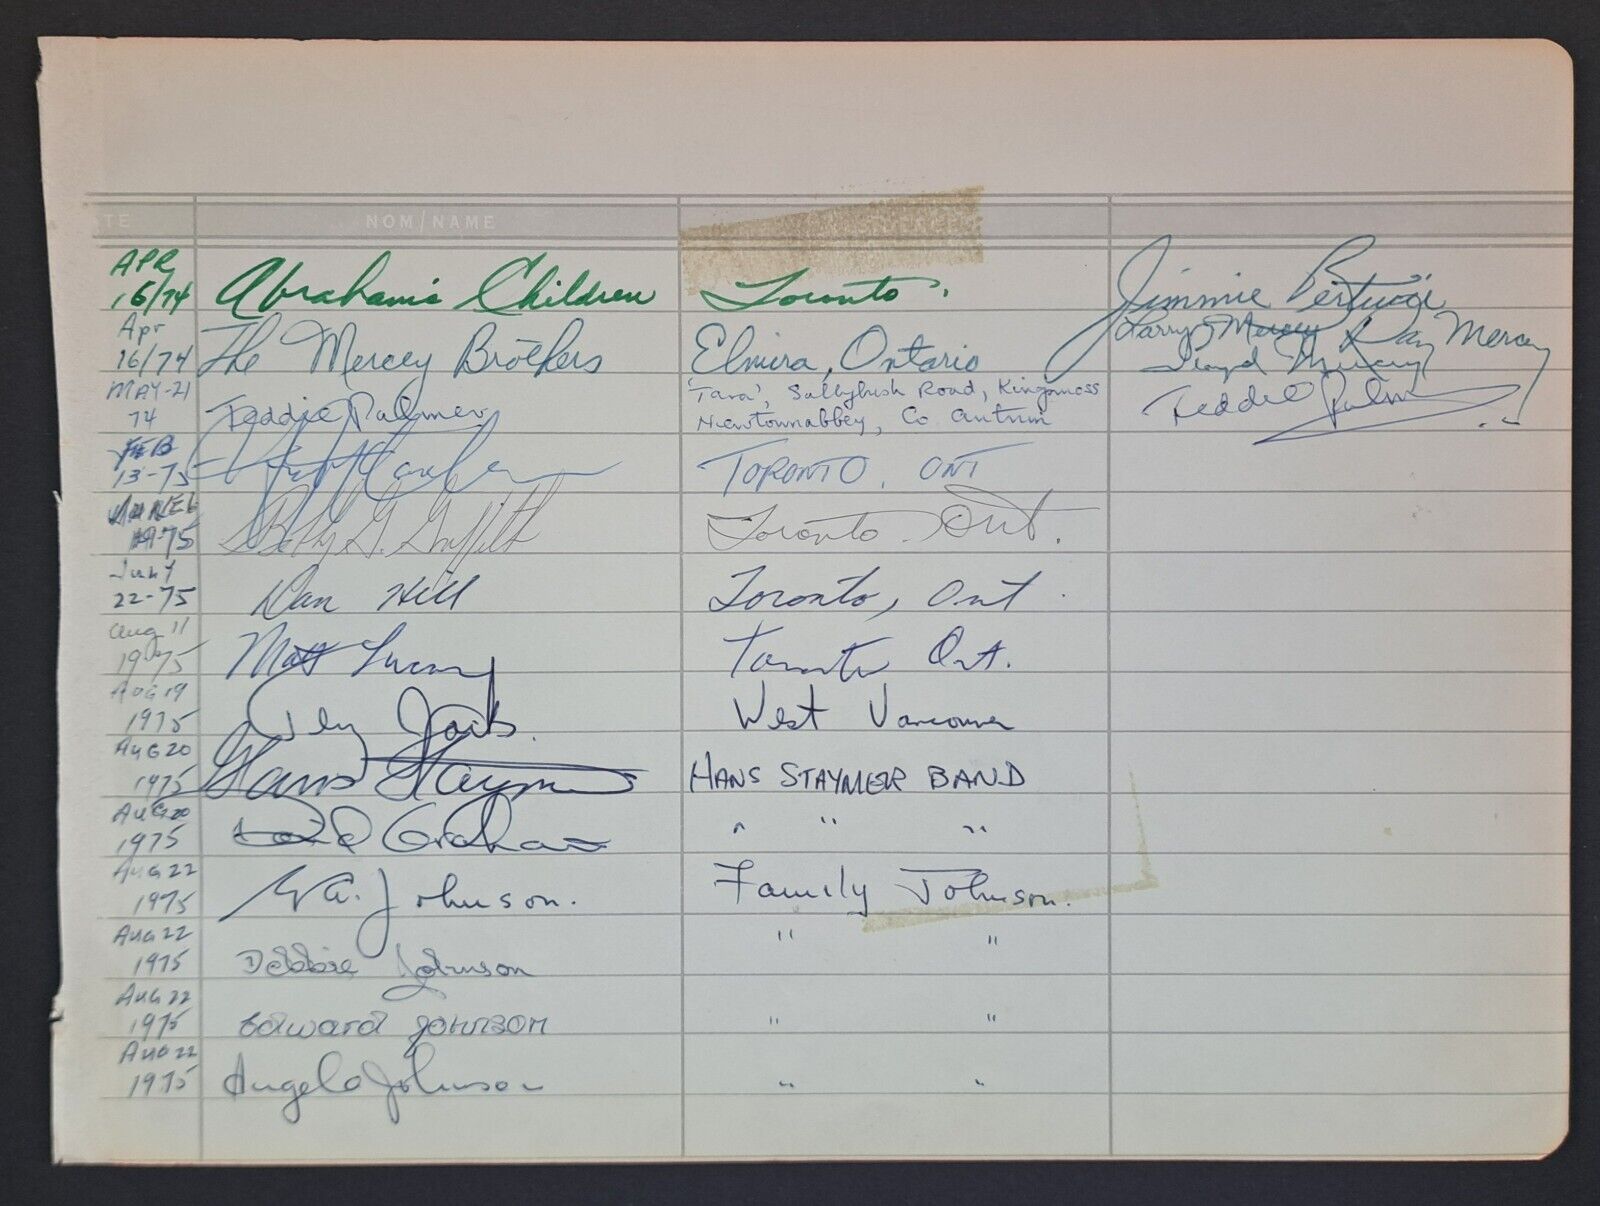 TE NOM/NAME
APR 16/74 Abraham's Children Toronto. Jimmie Bertucci
Apr 16/74 The Mercey Brothers Elmira, Ontario Larry Mercey Ray Mercey
Lloyd Mercey
MAY-21 74 Teddie Palmer 'Tara', Sallybush Road, Kingsmoss
Newtownabbey, Co Antrim Teddie Palmer
FEB 13-75 TORONTO, ONT
75 Betty G. Griffith Toronto Ont.
July 22-75 Dan Hill Toronto, Ont.
Aug 11 1975 Matt Toronto Ont.
AUG 19 1975 Terry Jacks. West Vancouver
AUG 20 1975 Hans Staymer HANS STAYMER BAND
AUG 20 1975 Graham " " "
AUG 22 1975 Johnson. Family Johnson.
AUG 22 1975 Debbie Johnson " "
AUG 22 1975 Edward Johnson " "
AUG 22 1975 Angelo Johnson " "